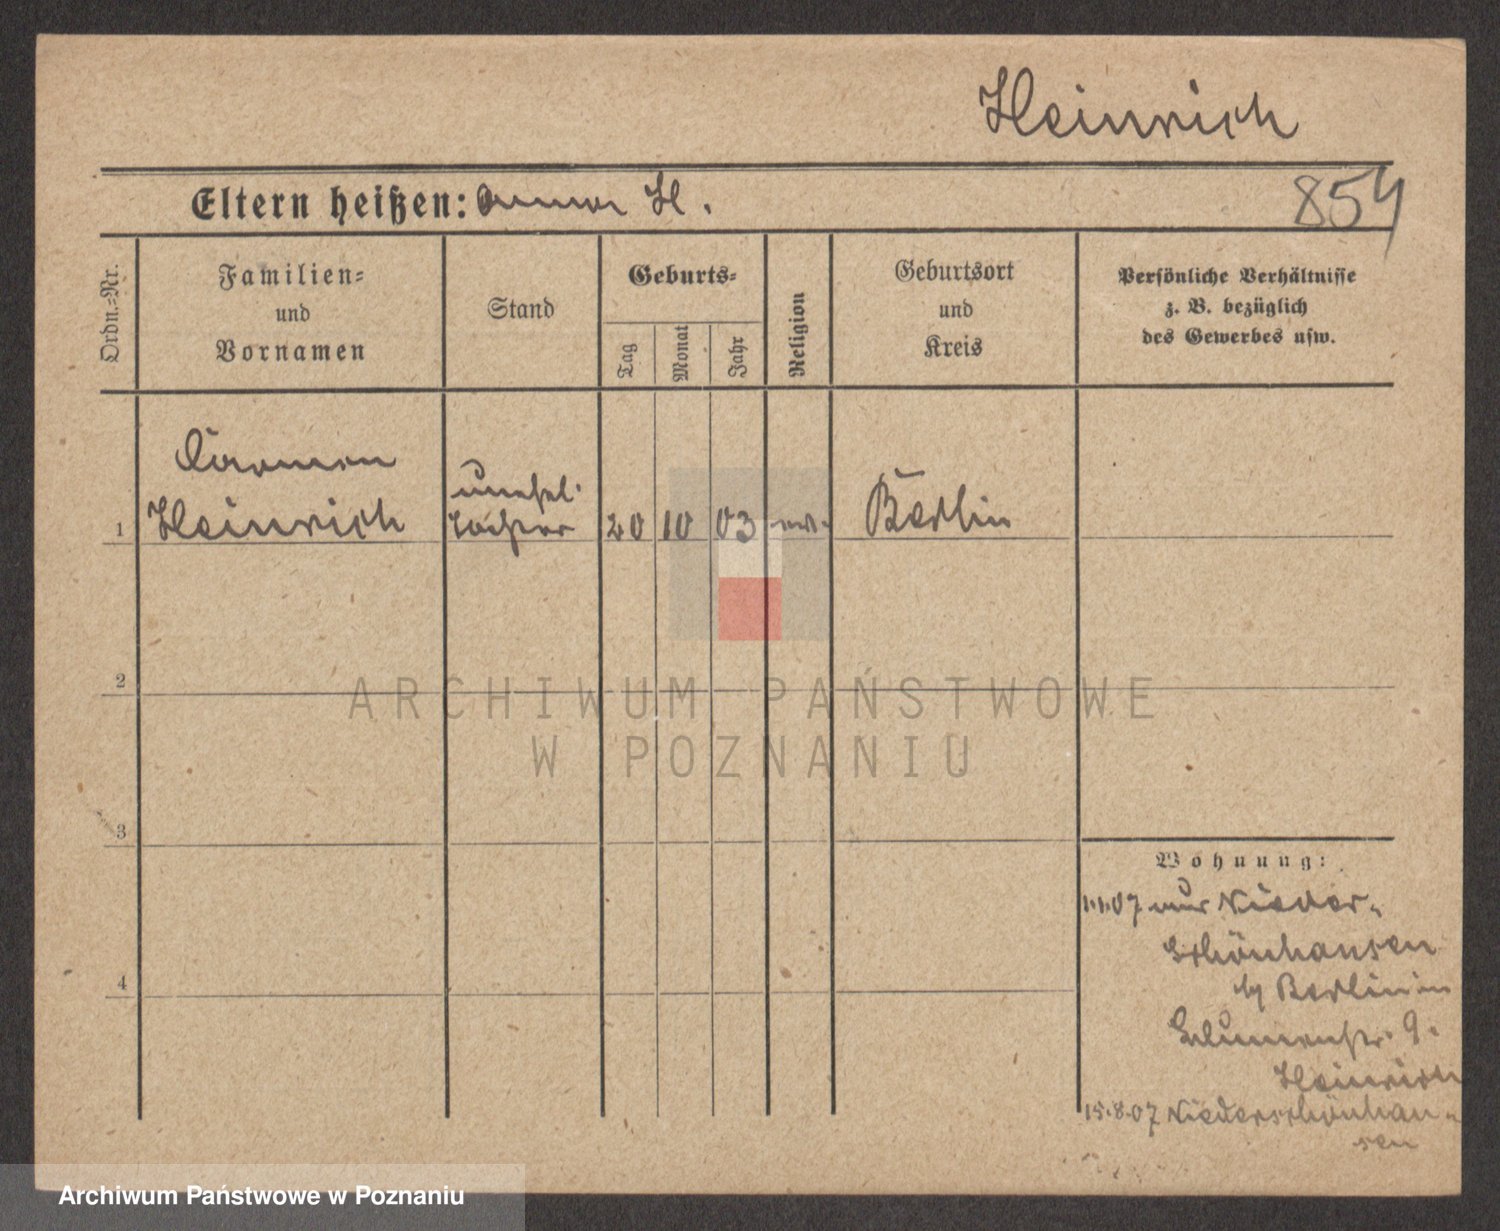 Heinrich
Eltern heißen: Anna H.
854
Ordn.=Nr.
Familien=
und
Vornamen
Stand
Geburts=
Tag
Monat
Jahr
Religion
Geburtsort
und
Kreis
Persönliche Verhältnisse
z. B. bezüglich
des Gewerbes usw.
Carmen
unehel.
1 Heinrich Tochter 20 10 03 ev. Berlin
2
ARCHIWUM PAŃSTWOWE
W POZNANIU
3
Wohnung:
1.1.07 nur Nieder-
schönhausen
b/ Berlin in
Blumenstr. 9.
Heinrich
15.8.07 Niederschönhau-
sen
4
Archiwum Państwowe w Poznaniu